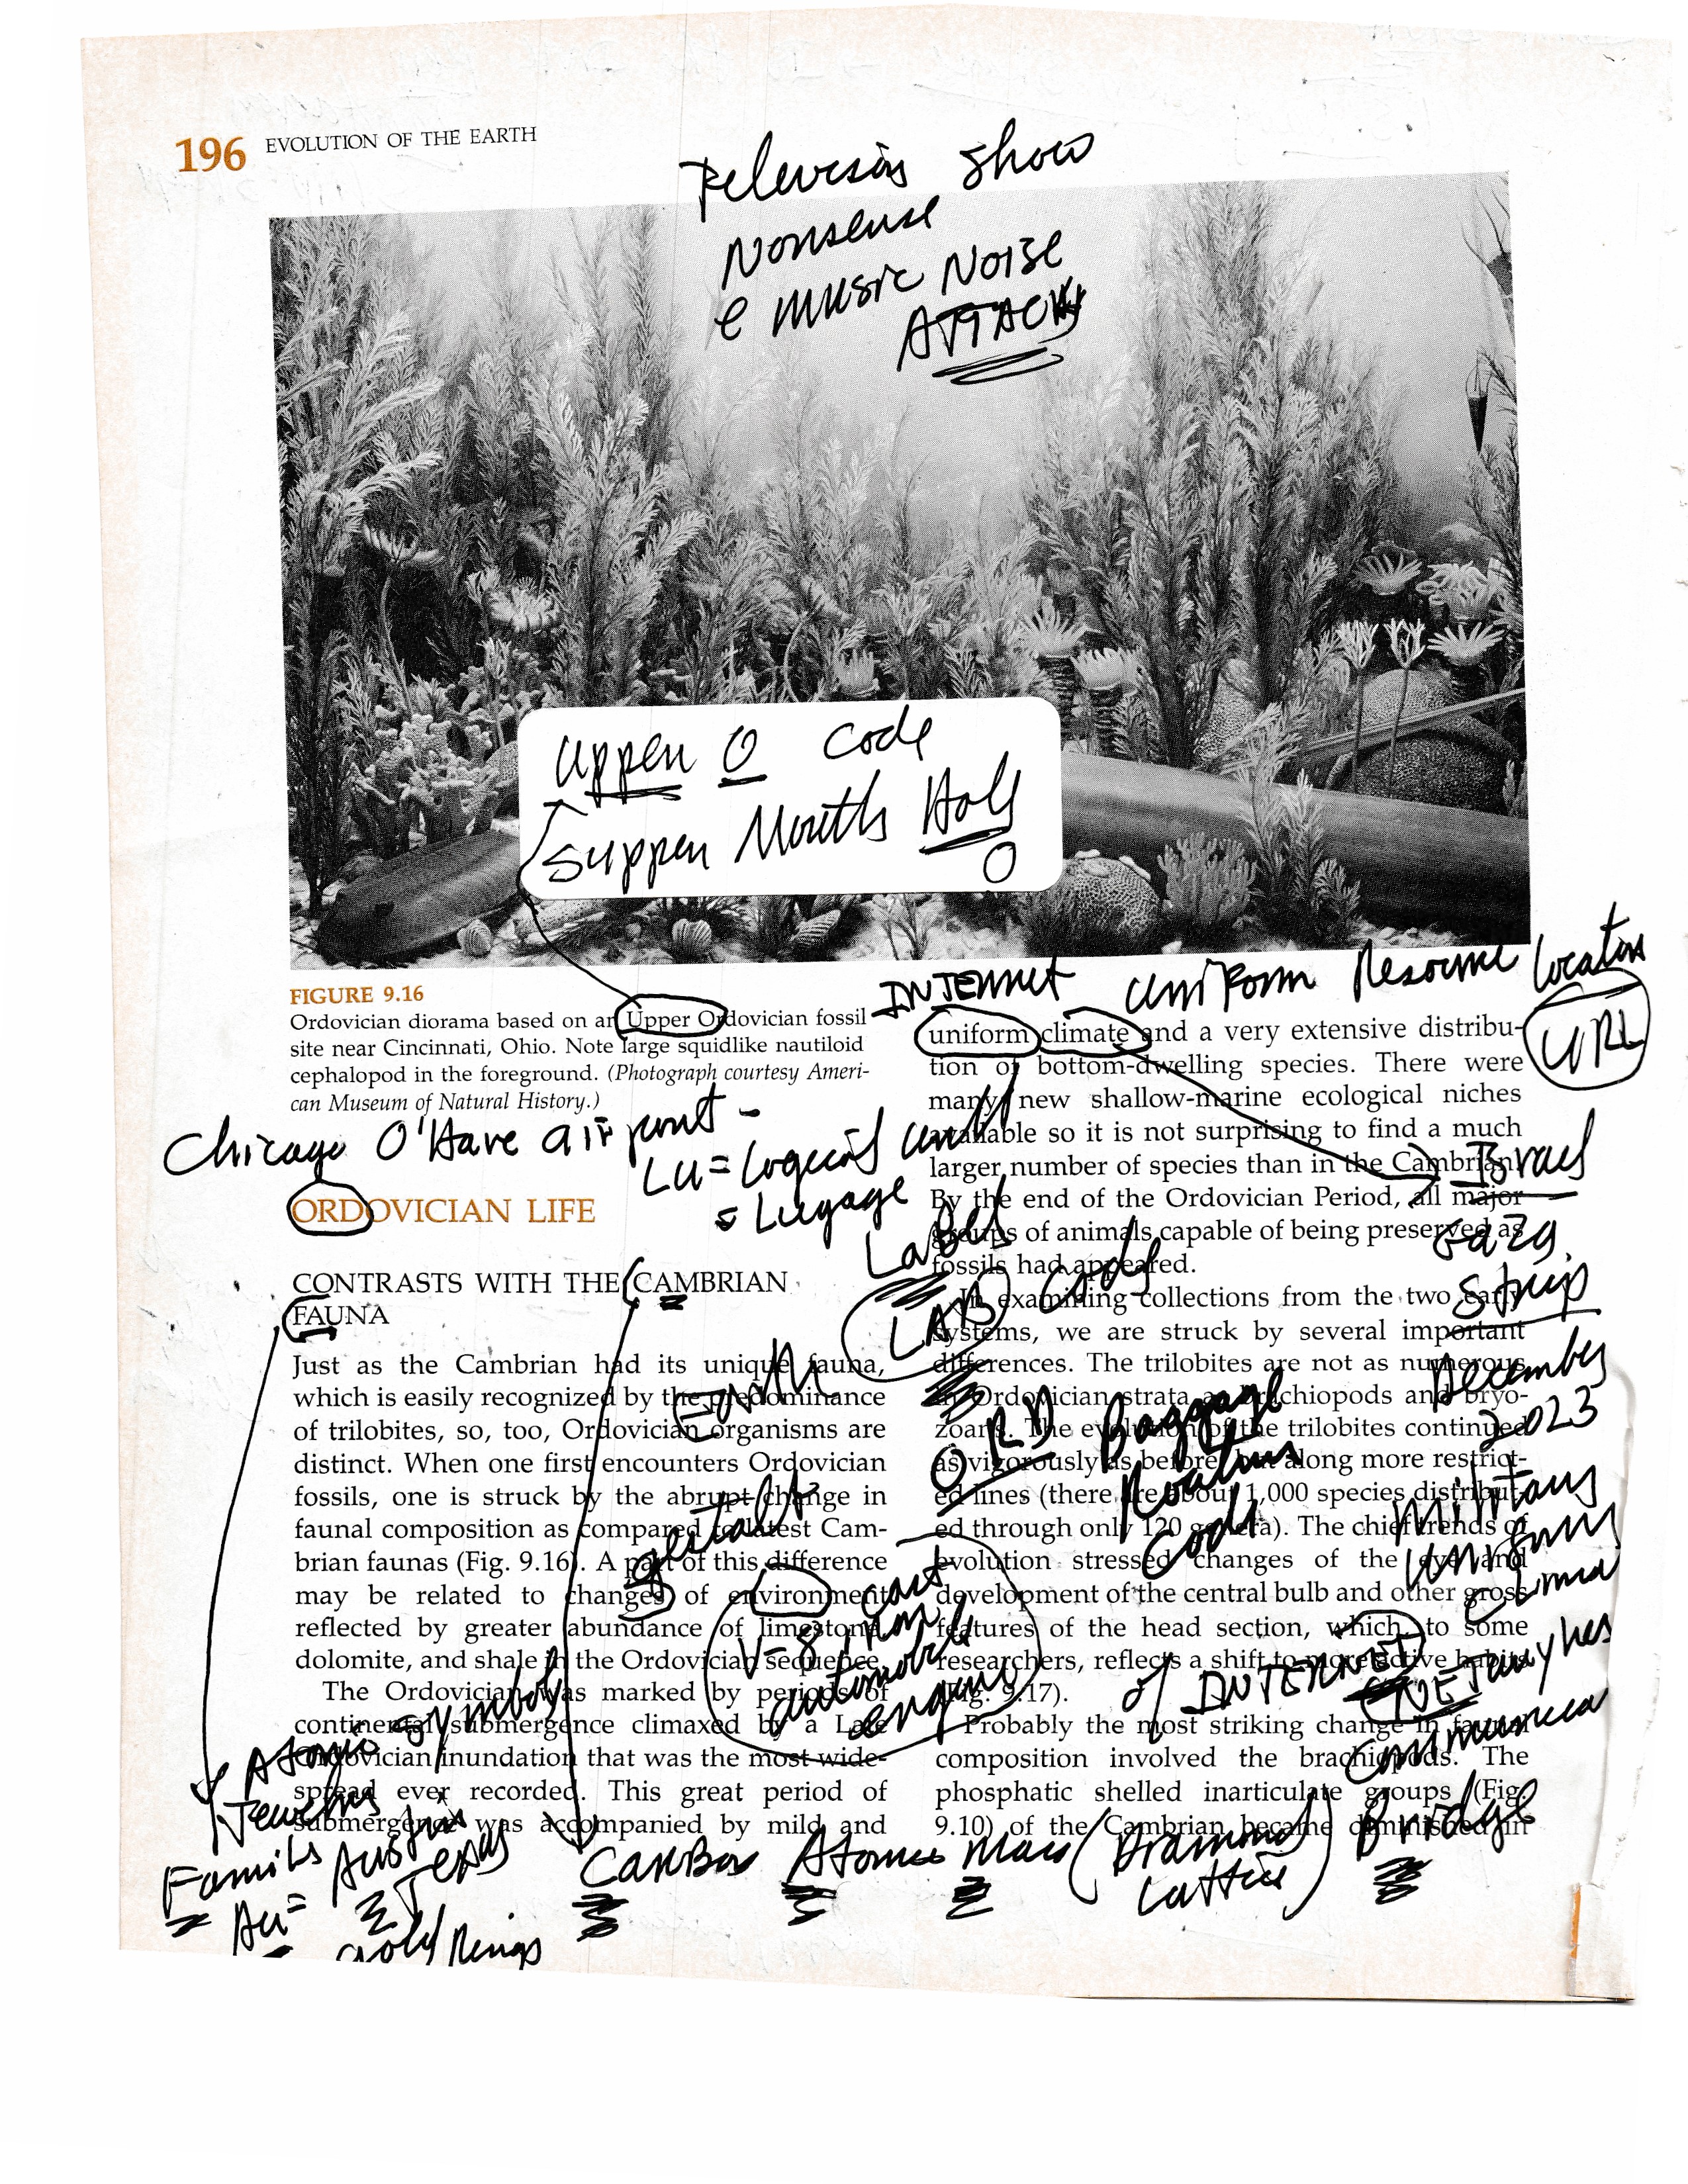 196 EVOLUTION OF THE EARTH
Television Show
Nonsense
e Music NOISE
ATTACK
Upper O Code
Supper Mouth Hole
O
FIGURE 9.16
Ordovician diorama based on an Upper Ordovician fossil
site near Cincinnati, Ohio. Note large squidlike nautiloid
cephalopod in the foreground. (Photograph courtesy Ameri-
can Museum of Natural History.)
Chicago O'Hare airport -
LU = Logical unit
= Lugage
Label
LAB Code
ORD Baggage
Routing
Code
ORDOVICIAN LIFE
CONTRASTS WITH THE CAMBRIAN
FAUNA
Just as the Cambrian had its unique fauna,
which is easily recognized by the predominance
of trilobites, so, too, Ordovician organisms are
distinct. When one first encounters Ordovician
fossils, one is struck by the abrupt change in
faunal composition as compared to latest Cam-
brian faunas (Fig. 9.16). A part of this difference
may be related to changes of environment
reflected by greater abundance of limestone,
dolomite, and shale in the Ordovician sequence.
The Ordovician was marked by periods of
continental submergence climaxed by a Late
Ordovician inundation that was the most wide-
spread ever recorded. This great period of
submergence was accompanied by mild and
Earth
gestalt
V-8 cast
iron
automobile
engine
Atomic symbol
Jewelry
Family Austin
Texas
Au =
Gold Rings
Carbon Atomic Mass (Diamond
Lattice) Bridge
INTERNET Uniform Resource Locator
URL
uniform climate and a very extensive distribu-
tion of bottom-dwelling species. There were
many new shallow-marine ecological niches
available so it is not surprising to find a much
larger number of species than in the Cambrian.
By the end of the Ordovician Period, all major
groups of animals capable of being preserved as
fossils had appeared.
In examining collections from the two early
systems, we are struck by several important
differences. The trilobites are not as numerous
in Ordovician strata as brachiopods and bryo-
zoans. The evolution of the trilobites continued
as vigorously as before, but along more restrict-
ed lines (there are about 1,000 species distribut-
ed through only 120 genera). The chief trends of
evolution stressed changes of the eye and
development of the central bulb and other gross
features of the head section, which, to some
researchers, reflects a shift to more active habits
(Fig. 9.17).
Probably the most striking change in faunal
composition involved the brachiopods. The
phosphatic shelled inarticulate groups (Fig.
9.10) of the Cambrian became diminished in
Israel
Gaza
Strip
December
2023
Military
Uniform
of INTERNET